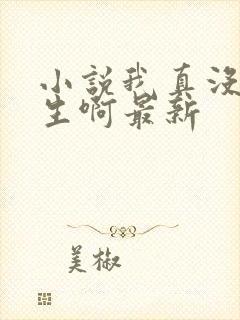 小説我真没
生啊最新
美椒